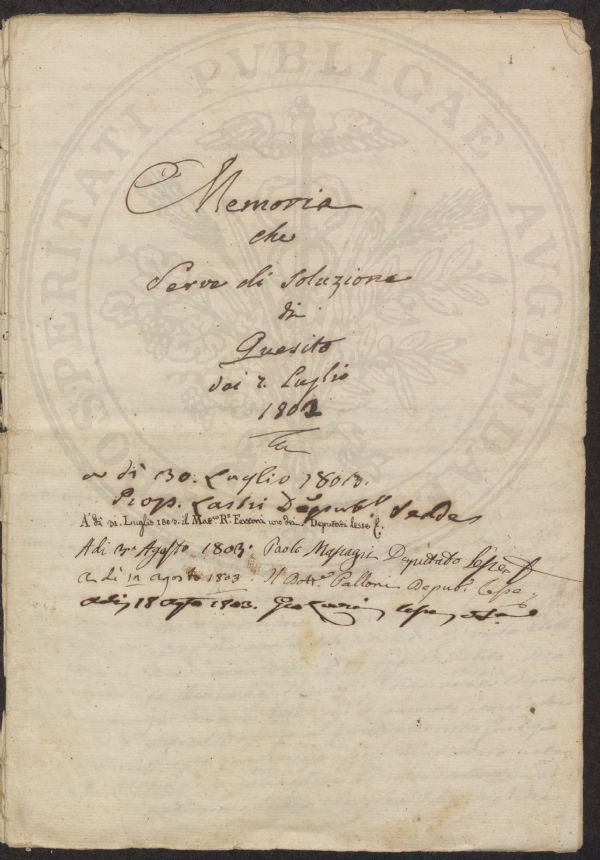 1
PROSPERITATI PVBLICAE AVGENDAE
Memoria
che
Serve di soluzione
di
Quesito
dei 2. Luglio
1802
a dì 30. Luglio 1803.
Prop. Lastri
A' dì 31. Luglio 1803. il Mat.co R.o Ferroni uno dei Deputati lesse
A dì 3 Agosto 1803. Paolo Deputato lesse
a dì 12 agosto 1803. Il Dott.e Palloni Deput. lesse
adì 18 Agto 1803.